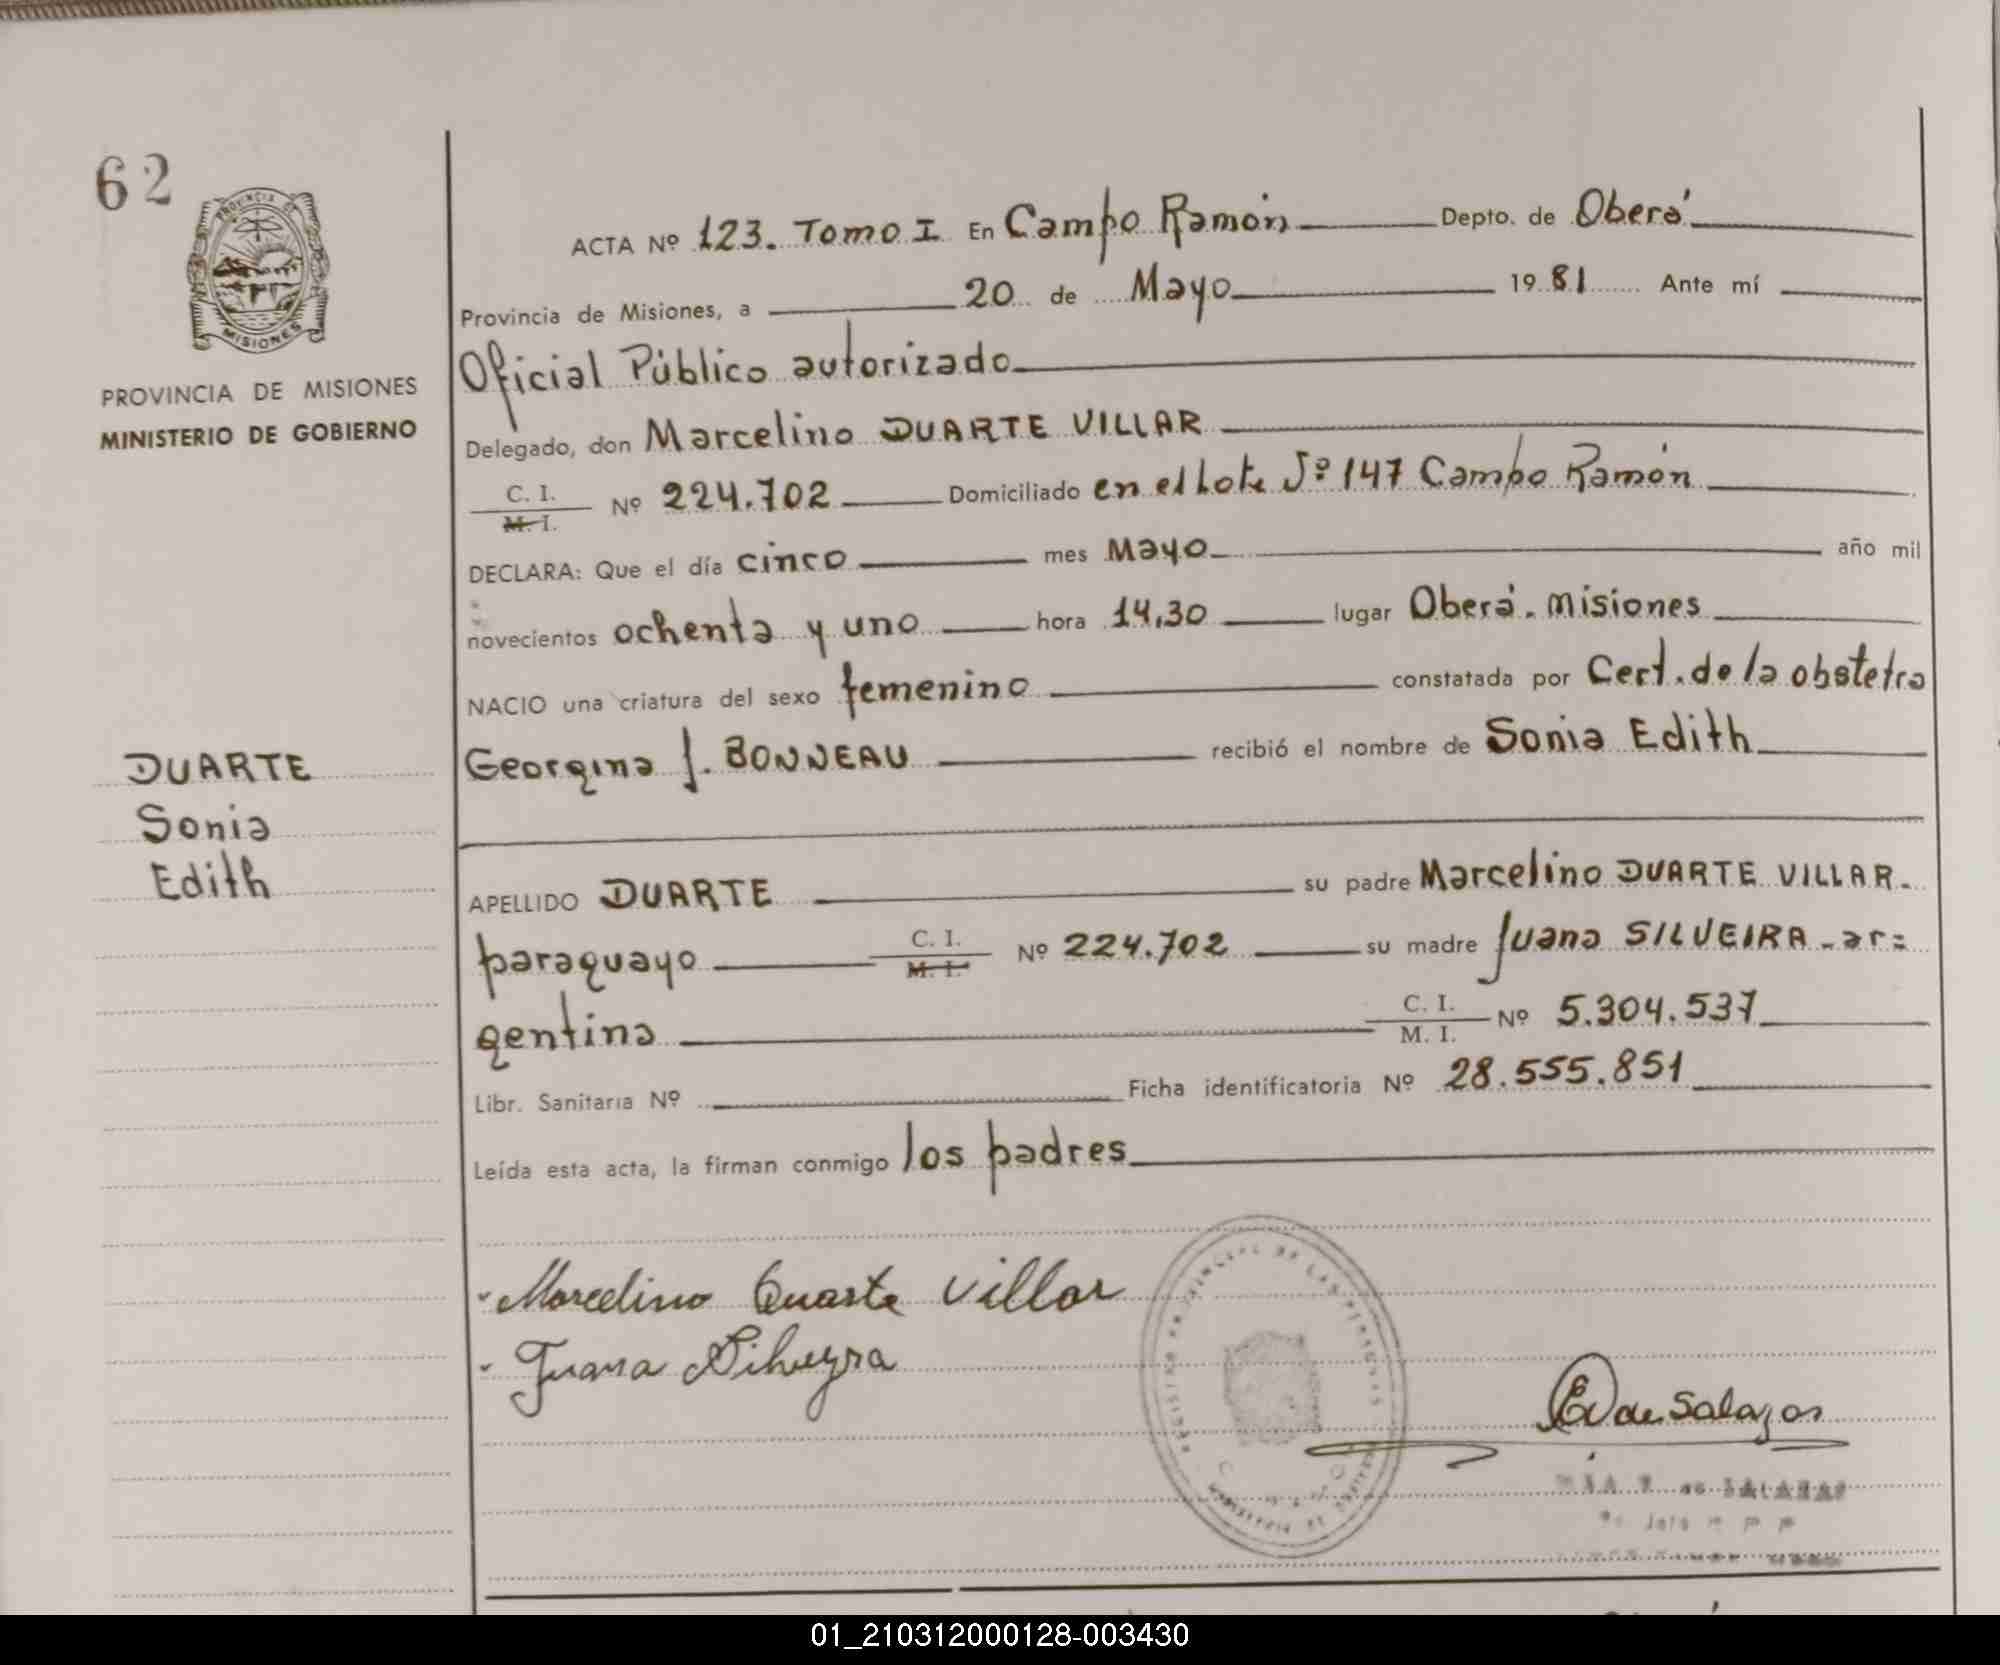 62
PROVINCIA DE
MISIONES
PROVINCIA DE MISIONES
MINISTERIO DE GOBIERNO
DUARTE
Sonia
Edith
ACTA Nº 123. Tomo I En Campo Ramón Depto. de Oberá
Provincia de Misiones, a 20 de Mayo 1981 Ante mí
Oficial Público autorizado
Delegado, don Marcelino DUARTE VILLAR
C. I.
M. I. Nº 224.702 Domiciliado en el Lote Nº 147 Campo Ramón
DECLARA: Que el día cinco mes Mayo año mil
novecientos ochenta y uno hora 14,30 lugar Oberá. Misiones
NACIO una criatura del sexo femenino constatada por Cert. de la obstetra
Georgina J. BONNEAU recibió el nombre de Sonia Edith
APELLIDO DUARTE su padre Marcelino DUARTE VILLAR.
paraguayo C. I. M. I. Nº 224.702 su madre Juana SILVEIRA - ar=
gentina C. I. M. I. Nº 5.304.537
Libr. Sanitaria Nº Ficha identificatoria Nº 28.555.851
Leída esta acta, la firman conmigo los padres
Marcelino Duarte Villar
Juana Silveyra
de Salazar
de SALAZAR
01_210312000128-003430